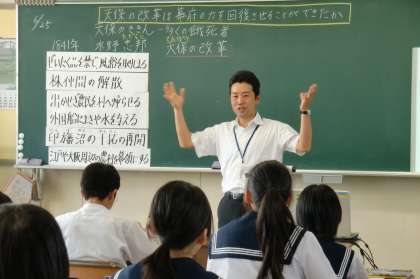 6/25
天保の改革は幕府の力を回復させることができたか
天保の
多くの餓死者
1841年 水野忠邦
天保の改革
ぜいたくを禁じて、風俗を取りしまる
株仲間の解散
出かせぎ農民を村へ帰らせる
外国船にまきや水を与える
印旛沼の干拓の再開
江戸や大阪周辺の農村を幕領にする